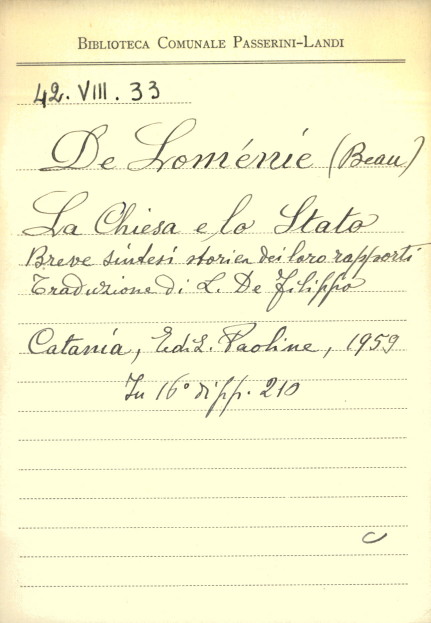 BIBLIOTECA COMUNALE PASSERINI-LANDI
42. VIII. 33
De Loménie (Beau)
La Chiesa e lo Stato
Breve sintesi storica dei loro rapporti
Traduzione di L. De Filippo
Catania, Ediz. Paoline, 1959
In 16° di pp. 210
c